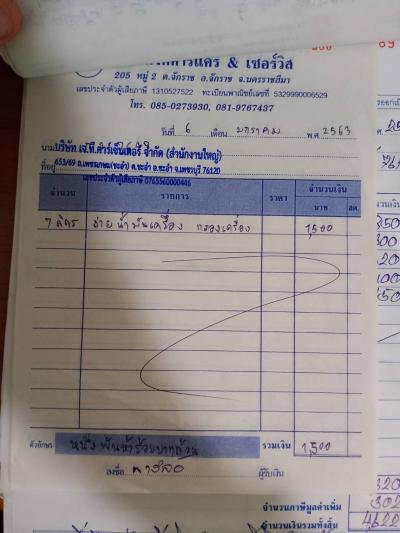 & เซอร์วิส
205 หมู่ 2 ต.จักราช อ.จักราช จ.นครราชสีมา
เลขประจำตัวผู้เสียภาษี 1310527522 ทะเบียนพาณิชย์เลขที่ 5329990006529
โทร. 085-0273930, 081-9767437
วันที่ 6 เดือน มกราคม พ.ศ. 2563
นาม บริษัท เจ.ที.คาร์เซ็นเตอร์ จำกัด (สำนักงานใหญ่)
ที่อยู่ 653/69 ถ.เพชรเกษม(ชะอำ) ต.ชะอำ อ.ชะอำ จ.เพชรบุรี 76120
เลขประจำตัวผู้เสียภาษี 0765560000446
จำนวน รายการ ราคา จำนวนเงิน
บาท สต.
7 ลิตร ถ่ายน้ำมันเครื่อง กรองเครื่อง 1,500
ตัวอักษร หนึ่งพันห้าร้อยบาทถ้วน รวมเงิน 1,500
ลงชื่อ ผู้รับเงิน
จำนวนภาษีมูลค่าเพิ่ม 302
จำนวนเงินรวมทั้งสิ้น 4,622